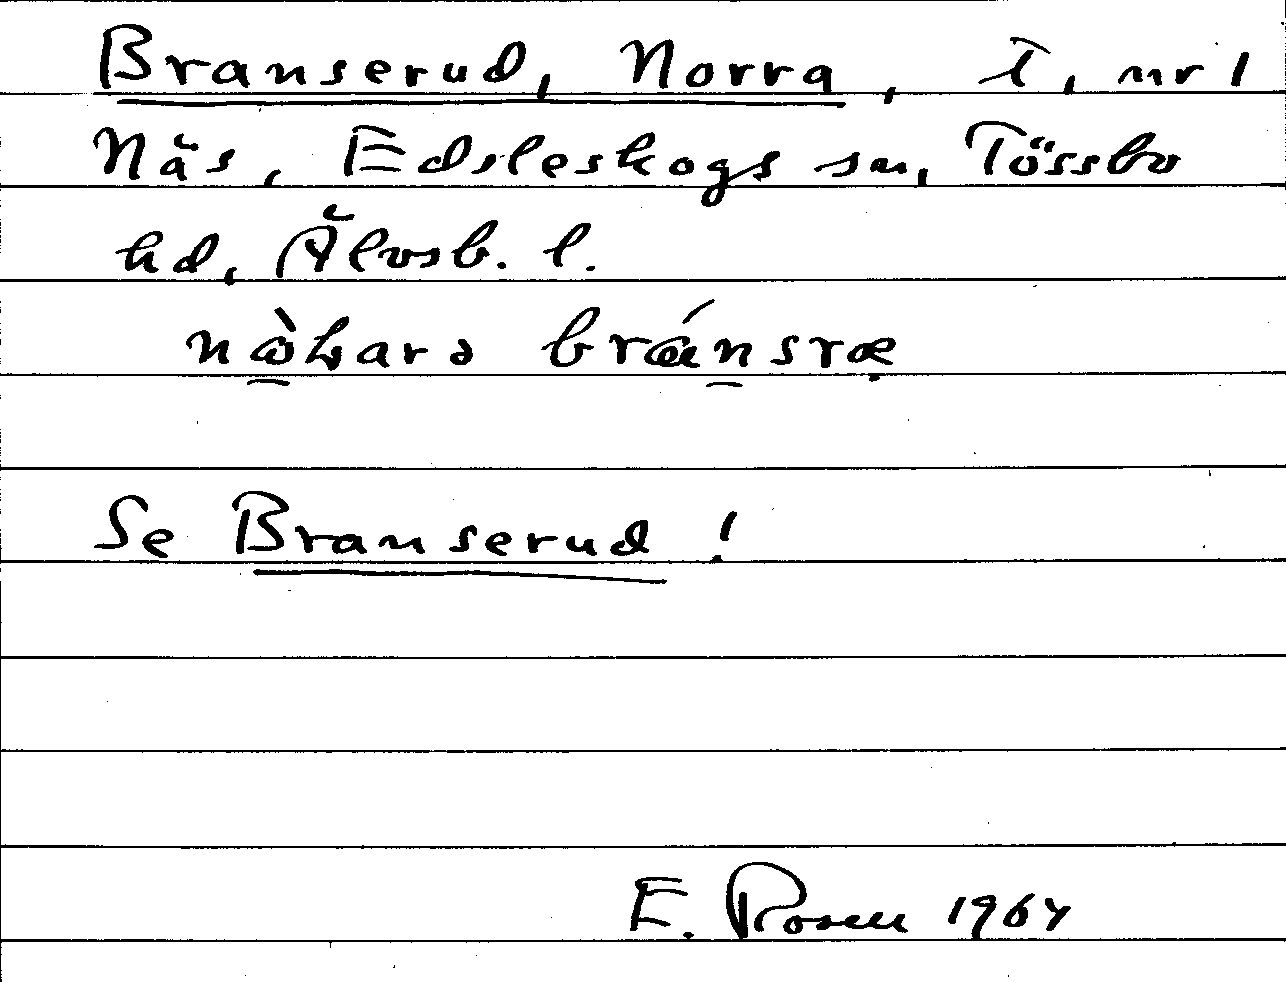 Branserud, Norra, T, nr 1
Näs, Edsleskogs sn, Tössbo
hd, Älvsb. l.
bránsræ
Se Branserud!
E. Rosen 1964